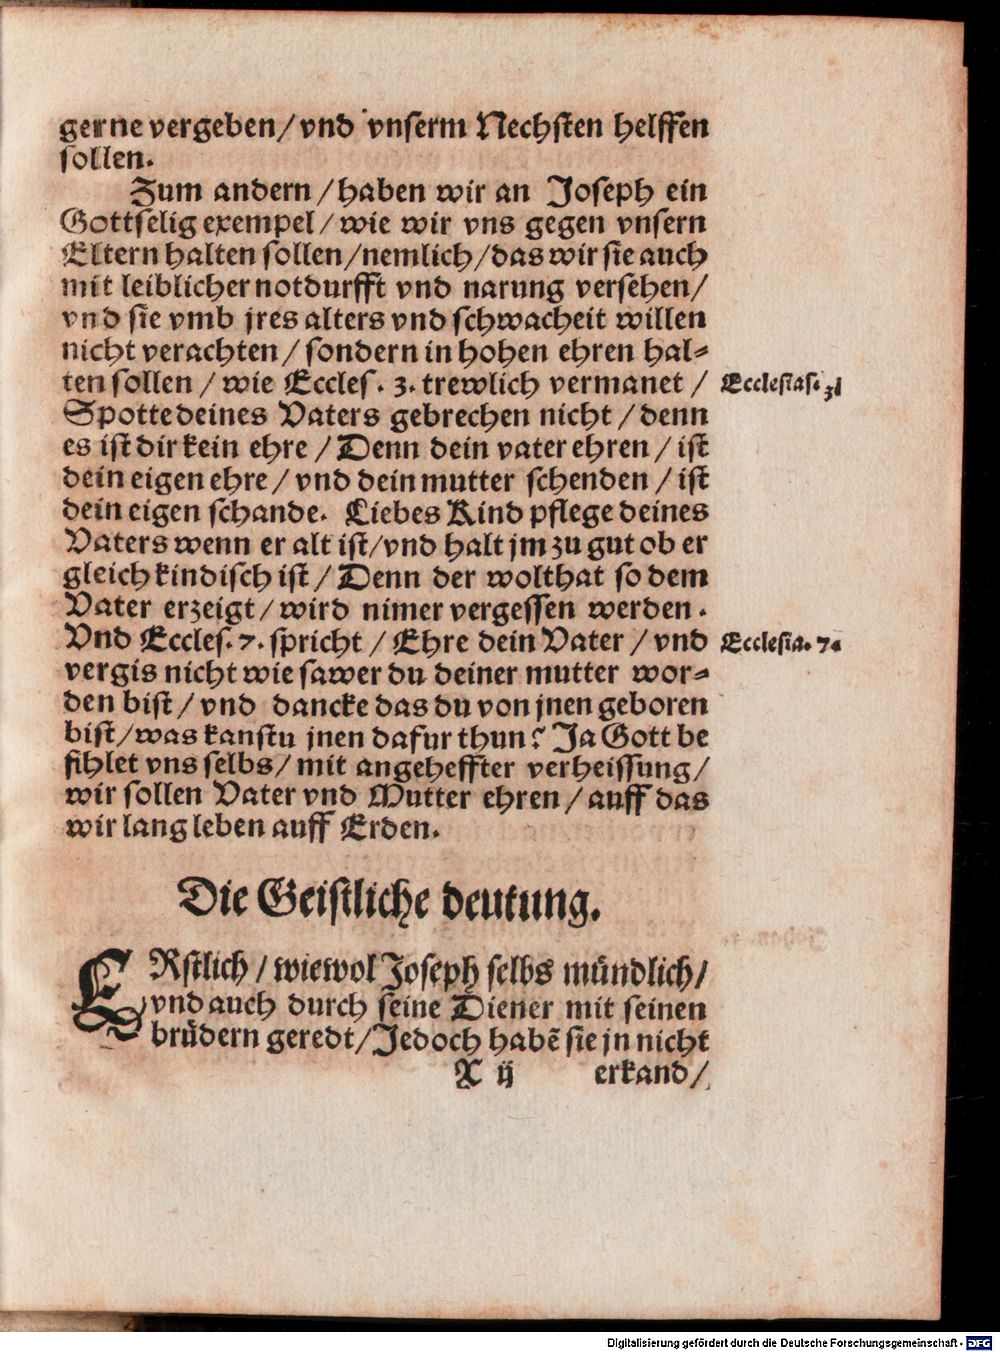 gerne vergeben/vnd vnserm Nechsten helffen
sollen.
Zum andern/haben wir an Joseph ein
Gottselig exempel/wie wir vns gegen vnsern
Eltern halten sollen/nemlich/das wir sie auch
mit leiblicher notdurfft vnd narung versehen/
vnd sie vmb jres alters vnd schwacheit willen
nicht verachten/sondern in hohen ehren hal-
ten sollen/wie Eccles. 3. trewlich vermanet/ Ecclesias. 3
Spotte deines Vaters gebrechen nicht/denn
es ist dir kein ehre/Denn dein vater ehren/ist
dein eigen ehre/vnd dein mutter schenden/ist
dein eigen schande. Liebes Kind pflege deines
Vaters wenn er alt ist/vnd halt jm zu gut ob er
gleich kindisch ist/Denn der wolthat so dem
Vater erzeigt/wird nimer vergessen werden.
Vnd Eccles. 7. spricht/Ehre dein Vater/vnd Ecclesia. 7.
vergis nicht wie sawer du deiner mutter wor-
den bist/vnd dancke das du von jnen geboren
bist/was kanstu jnen dafur thun? Ja Gott be
fihlet vns selbs/mit angeheffter verheissung/
wir sollen Vater vnd Mutter ehren/auff das
wir lang leben auff Erden.
Die Geistliche deutung.
ERstlich/wiewol Joseph selbs mündlich/
vnd auch durch seine Diener mit seinen
brüdern geredt/Jedoch habẽ sie jn nicht
X ij erkand/
Digitalisierung gefördert durch die Deutsche Forschungsgemeinschaft - DFG